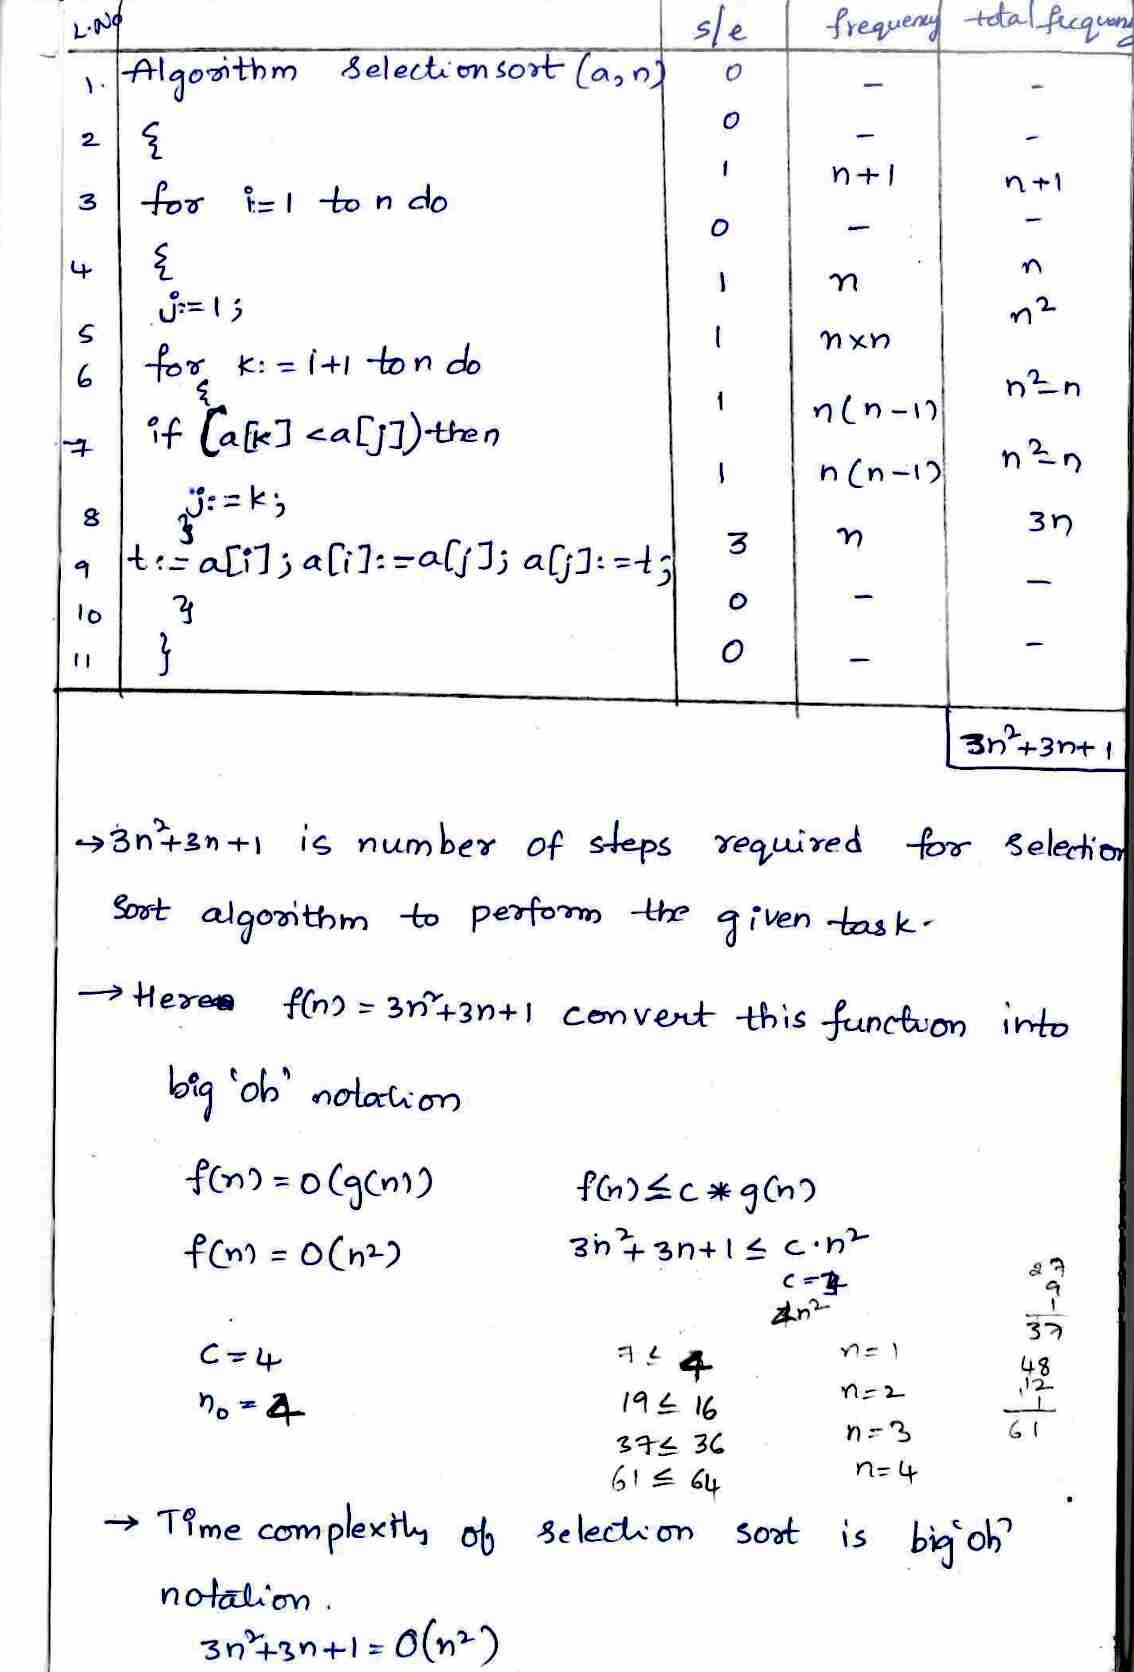 L.No s/e frequency total frequen
1. Algorithm Selectionsort (a,n) 0 - -
2 { 0 - -
3 for i=1 to n do 1 n+1 n+1
4 { 0 - -
5 j:=1; 1 n n
6 for k:=i+1 to n do 1 n×n n²
{
7 if (a[k] <a[j]) then 1 n(n-1) n²-n
8 j:=k; 1 n(n-1) n²-n
}
9 t:=a[i]; a[i]:=a[j]; a[j]:=t; 3 n 3n
10 } 0 - -
11 } 0 - -
3n²+3n+1
→ 3n²+3n+1 is number of steps required for selection
Sort algorithm to perform the given task.
→ Here f(n) = 3n²+3n+1 convert this function into
big 'oh' notation
f(n) = O(g(n)) f(n) ≤ c * g(n)
f(n) = O(n²) 3n²+3n+1 ≤ c.n²
c=4 27
4n² 9
1
37
C=4 7 ≤ 4 n=1 48
n₀ = 4 19 ≤ 16 n=2 12
1
37 ≤ 36 n=3 61
61 ≤ 64 n=4
→ Time complexity of selection sort is big 'oh'
notation.
3n²+3n+1 = O(n²)